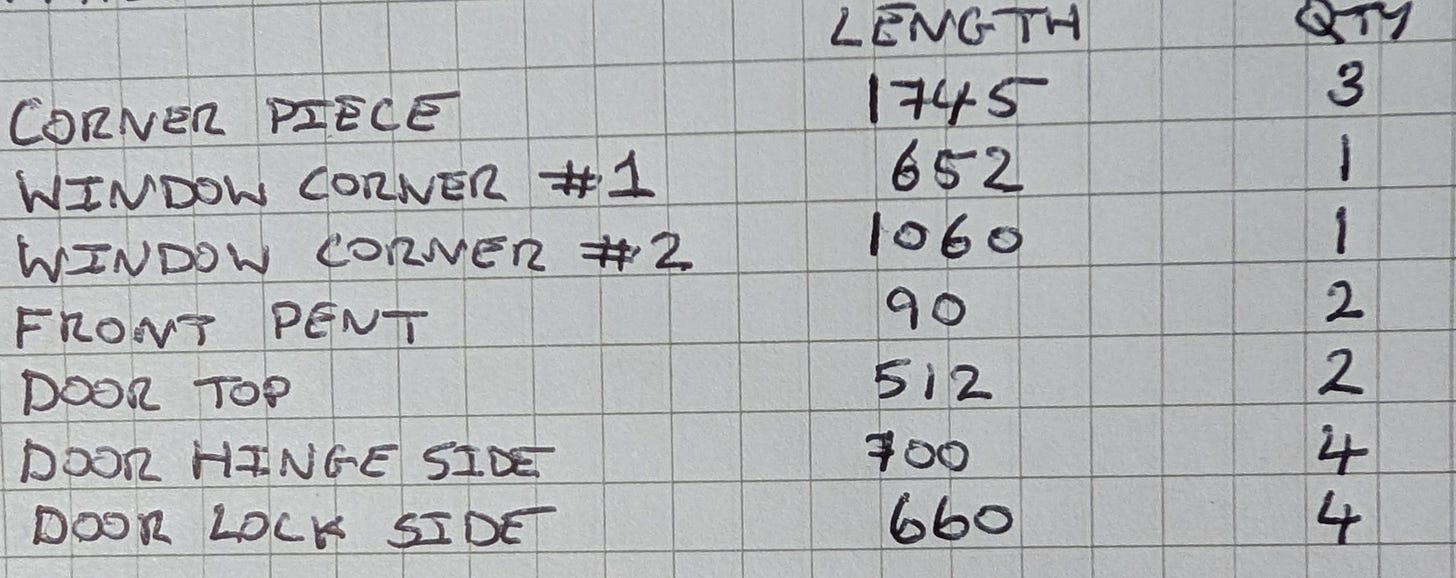 LENGTH QTY
CORNER PIECE 1745 3
WINDOW CORNER #1 652 1
WINDOW CORNER #2 1060 1
FRONT PENT 90 2
DOOR TOP 512 2
DOOR HINGE SIDE 700 4
DOOR LOCK SIDE 660 4